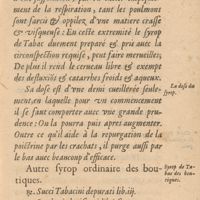 ment de la respiration, tant les poulmons
sont farcis & oppilez d'vne matiere crasse
& visqueuse: En ceste extremité le syrop
de Tabac duement preparé & pris auec la
circonspection requise, faut faire merueilles,
De plus il rend le cerueau libre & exempt
des defluxiōs & catarrhes froids & aqueux.
Sa dose est d'vne demi cueillerée seule-
ment, en laquelle pour vn commencement
il se faut comporter auec vne grande pru-
dence: On la pourra puis apres augmenter.
Outre ce qu'il aide à la repurgation de la
poictrine par les crachats, il purge aussi par
le bas auec beaucoup d'efficace.
La dose du
syrop.
Autre syrop ordinaire des bou-
tiques.
Syrop de Ta-
bac des bou-
tiques.
℞. Succi Tabacini depurati lib. iij.